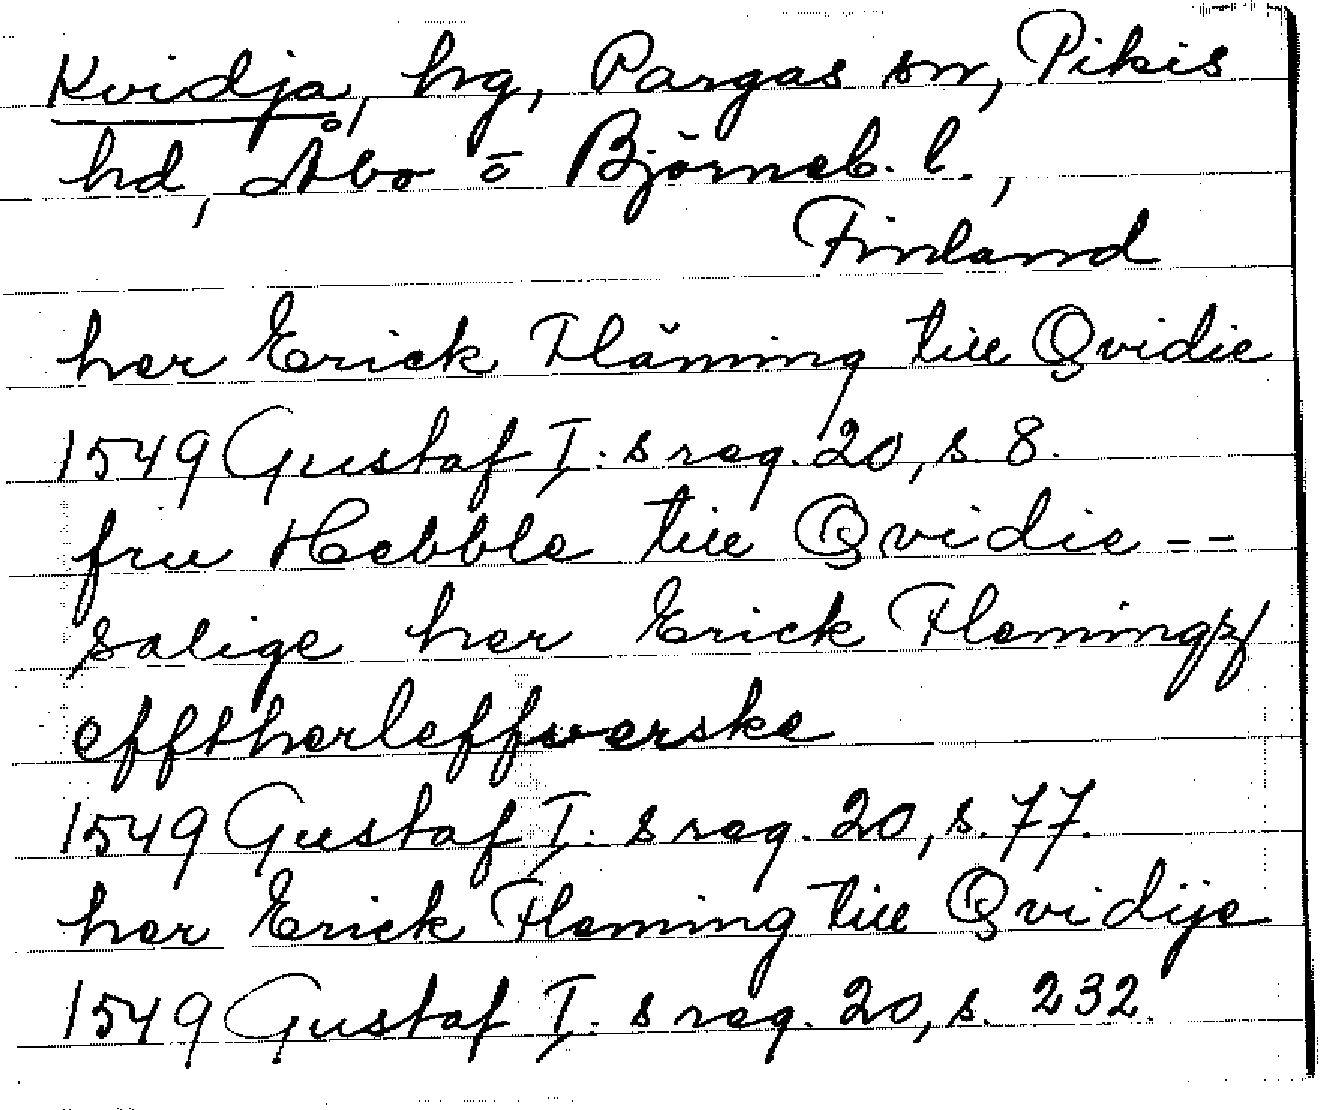 Kvidja, hg, Pargas sn, Pikis
hd, Åbo o Björneb. l.,
Finland
her Erick Fläming till Qvidie
1549 Gustaf I:s reg. 20, s. 8.
fru Hebble till Qvidie --
salige her Erick Flemingz
efftherleffverske
1549 Gustaf I:s reg. 20, s. 77.
her Erick Fleming till Qvidije
1549 Gustaf I:s reg. 20, s. 232.